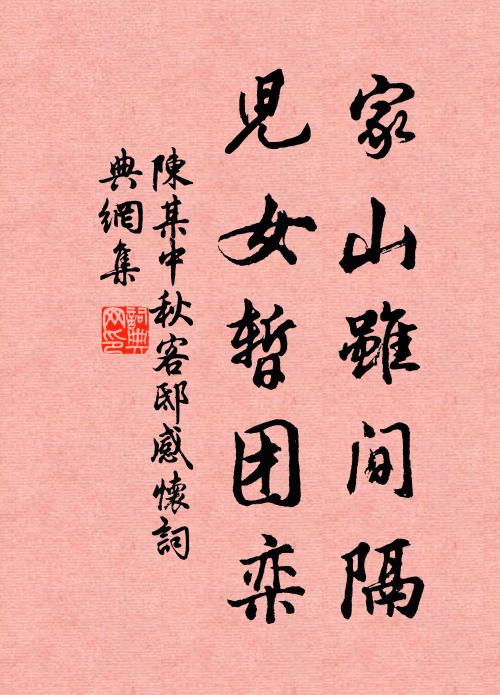 家山雖间隔
児女暫团栾
陳某中秋客邸感懷詞
典網集
詞典网印